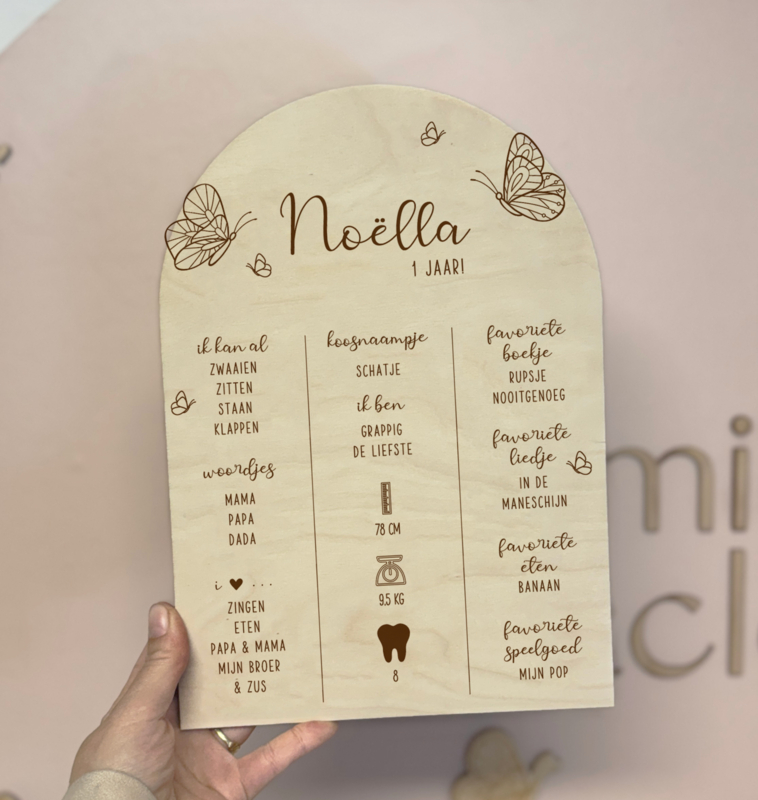 Noëlla
1 JAAR!
ik kan al
ZWAAIEN
ZITTEN
STAAN
KLAPPEN
woordjes
MAMA
PAPA
DADA
i ♥ ...
ZINGEN
ETEN
PAPA & MAMA
MIJN BROER
& ZUS
koosnaampje
SCHATJE
ik ben
GRAPPIG
DE LIEFSTE
78 CM
9,5 KG
8
favoriete
boekje
RUPSJE
NOOITGENOEG
favoriete
liedje
IN DE
MANESCHIJN
favoriete
eten
BANAAN
favoriete
speelgoed
MIJN POP
mi
cl